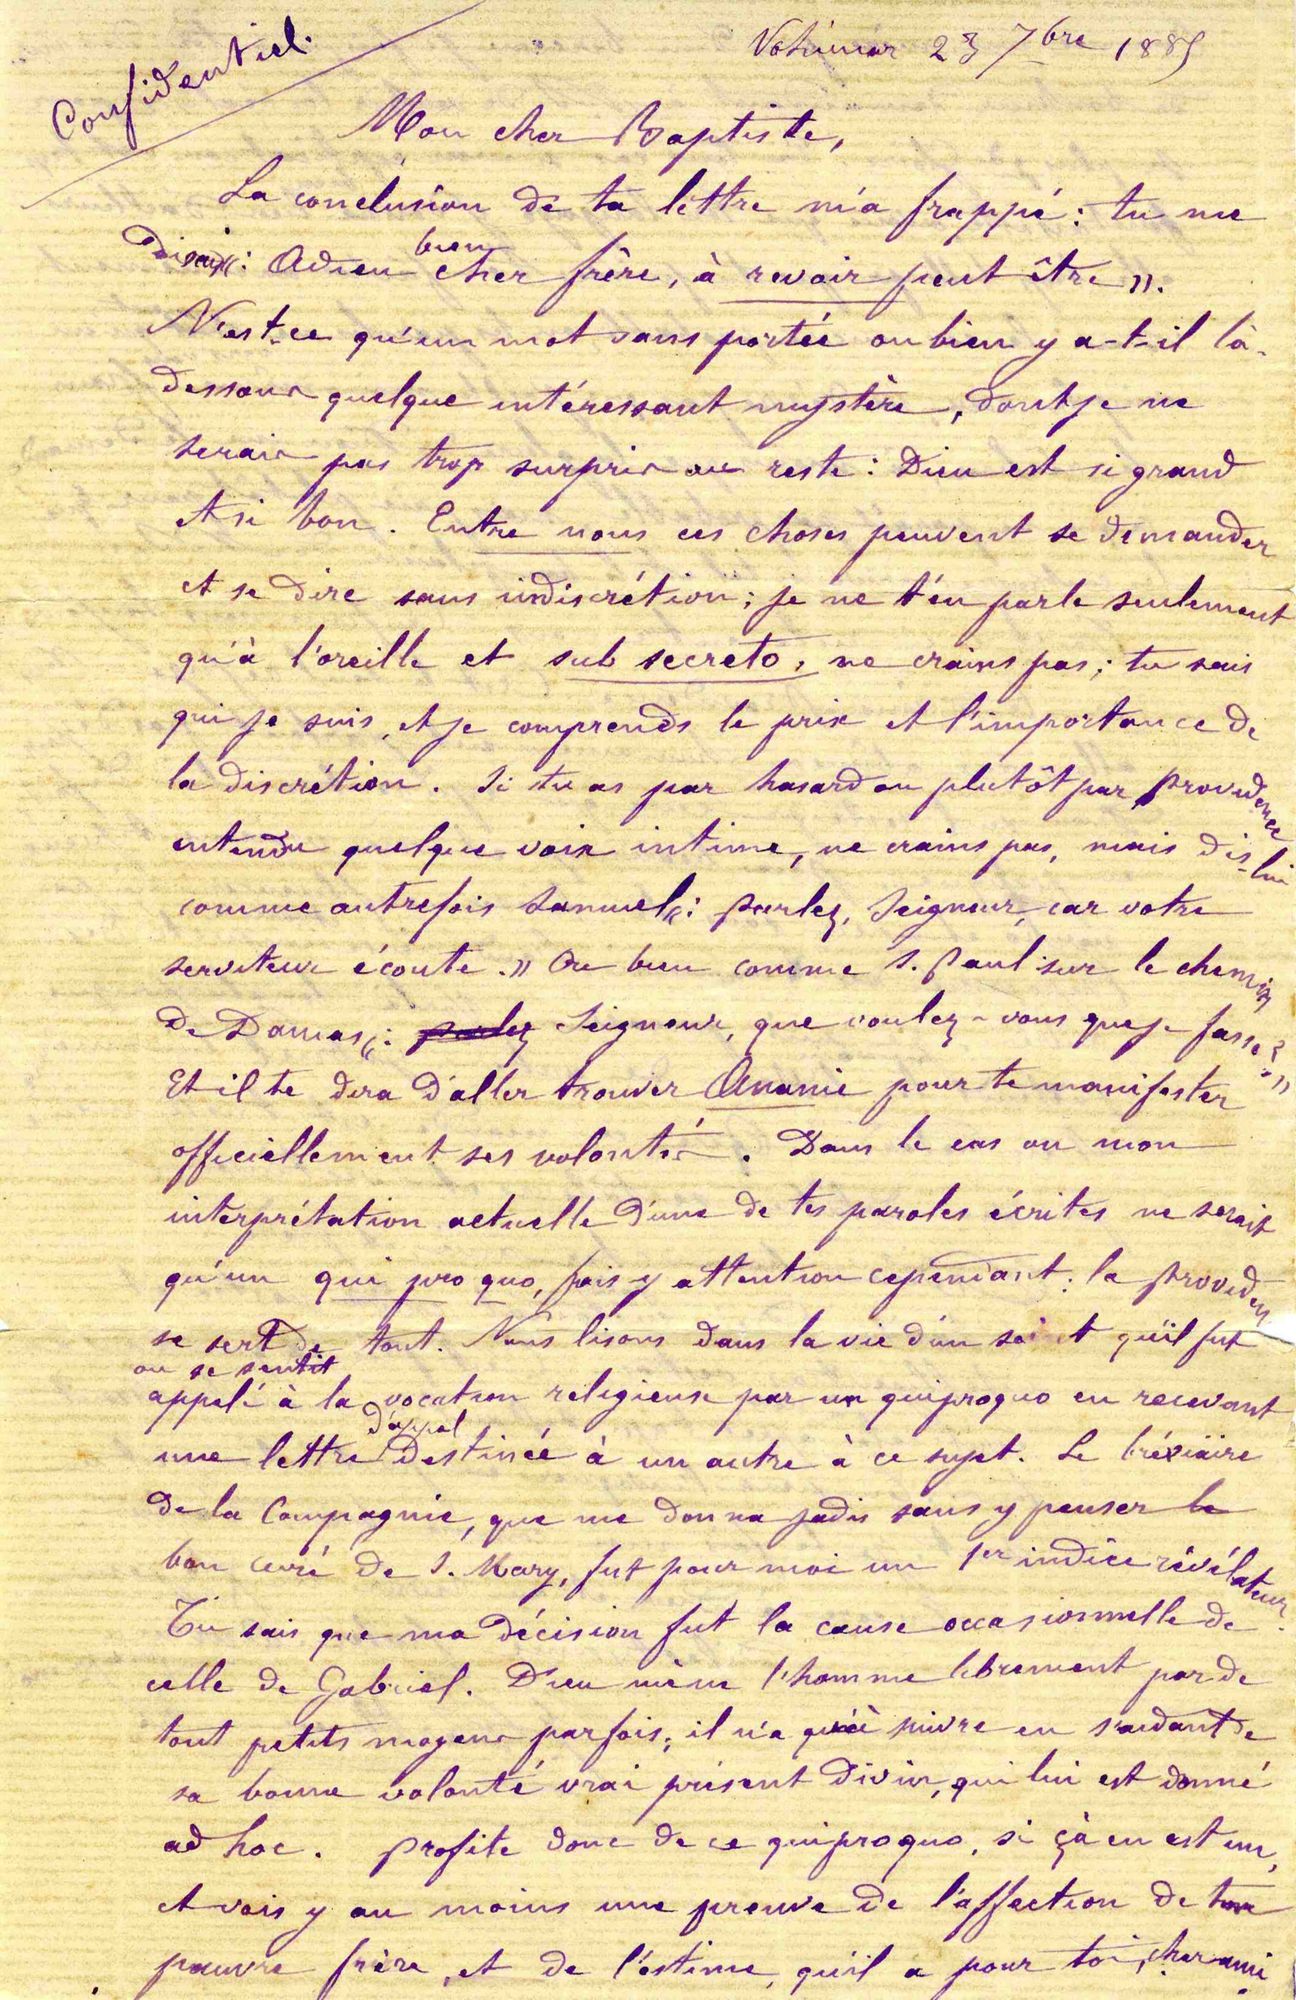 Confidentiel.
Vohémar 23 7bre 1885
Mon cher Baptiste,
La conclusion de ta lettre m'a frappé : tu me
disais « : Adieu bien cher frère, à revoir peut être ».
N'est-ce qu'un mot sans portée ou bien y a-t-il là-
dessous quelque intéressant mystère, dont je ne
serais pas trop surpris au reste : Dieu est si grand
et si bon. Entre nous ces choses peuvent se demander
et se dire sans indiscrétion ; je ne t'en parle seulement
qu'à l'oreille et sub secreto, ne crains pas ; tu sais
qui je suis, et je comprends le prix et l'importance de
la discrétion. Si tu as par hasard ou plutôt par providence
entendu quelque voix intime, ne crains pas, mais dis-lui
comme autrefois Samuel « : parlez, Seigneur, car votre
serviteur écoute. » Ou bien comme S. Paul sur le chemin
de Damas « : parlez Seigneur, que voulez-vous que je fasse ? »
Et il te dira d'aller trouver Ananie pour te manifester
officiellement ses volontés. Dans le cas ou mon
interprétation actuelle d'une de tes paroles écrites ne serait
qu'un qui pro quo, fais y attention cependant : la providen
se sert de tout. Nous lisons dans la vie d'un saint qu'il fut
ou se sentit
appelé à la vocation religieuse par un quiproquo en recevant
une lettre d'appel destinée à un autre à ce sujet. Le bréviaire
de la Compagnie, que me donna jadis sans y penser le
bon curé de S. Mary, fut pour moi un 1er indice révélateur.
Tu sais que ma décision fut la cause occasionnelle de
celle de Gabriel. Dieu mène l'homme librement par de
tout petits moyens parfois ; il n'a qu'à suivre en s'aidant de
sa bonne volonté vrai présent divin, qui lui est donné
ad hoc. Profite donc de ce quiproquo, si çà en est un,
et vois y au moins une preuve de l'affection de ton
pauvre frère, et de l'estime, qu'il a pour toi, cher ami.